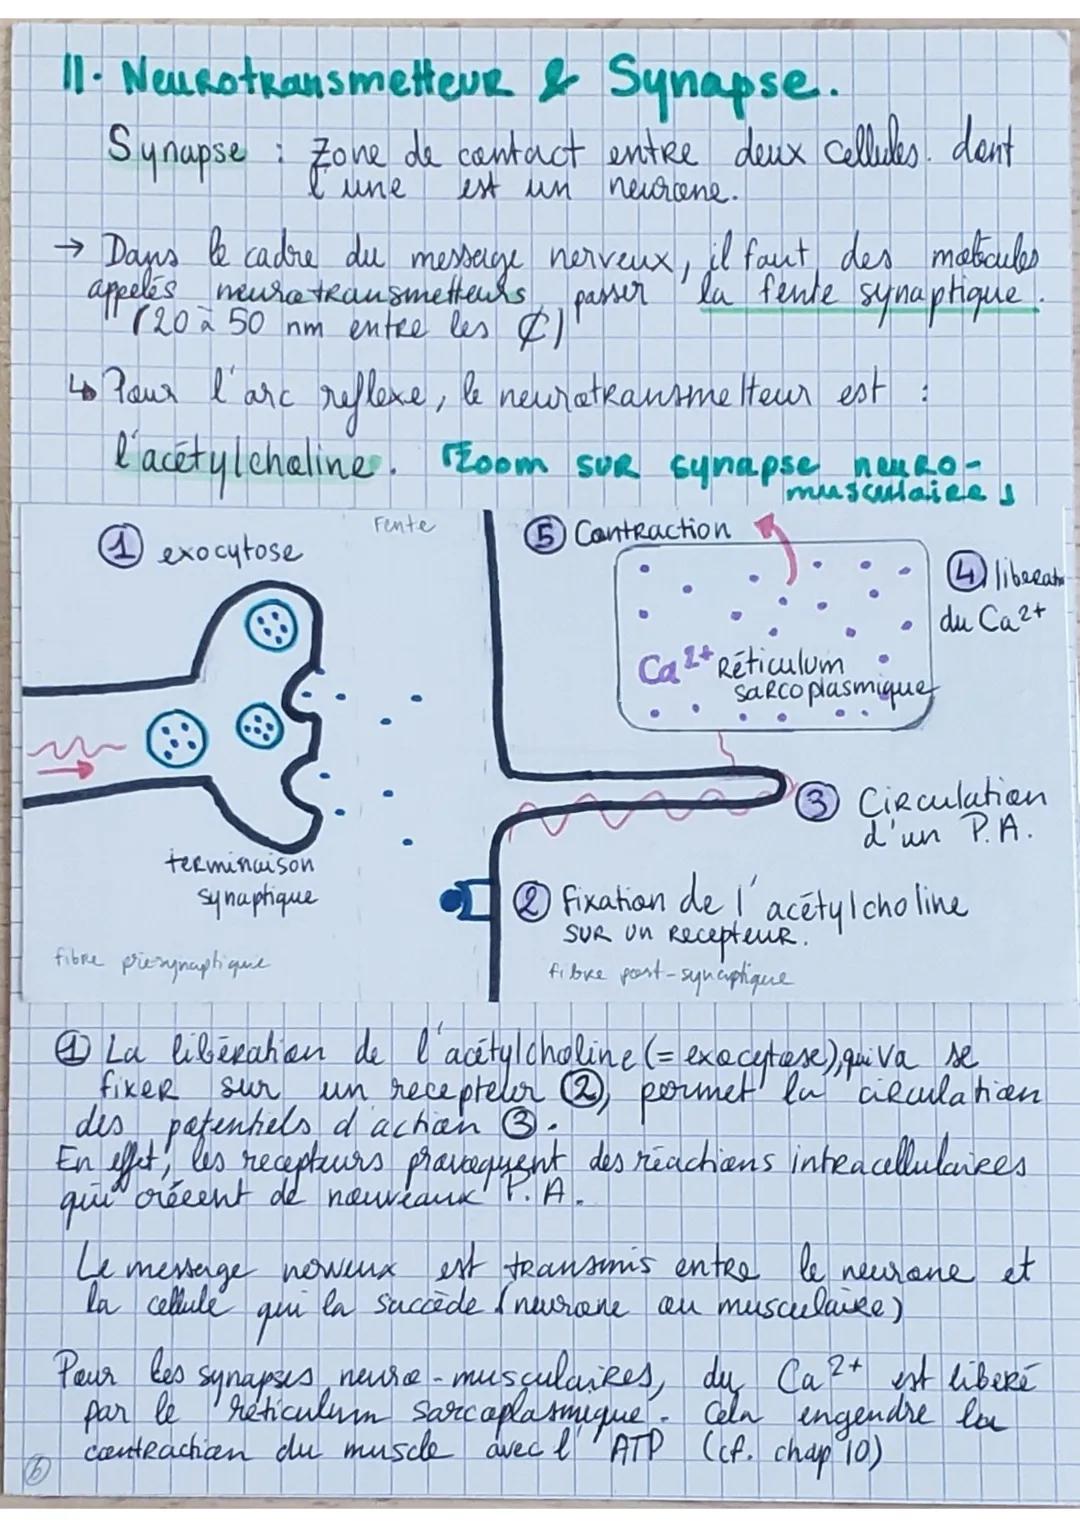 II. Neurotransmetteur & Synapse.
Synapse : Zone de contact entre deux cellules. dont
l'une est un neurone.
→ Dans le cadre du message nerveux, il faut des molécules
appelés neurotransmetteurs passer la fente synaptique.
(20 à 50 nm entre les ₵)
↳ Pour l'arc reflexe, le neurotransmetteur est :
l'acétylcholine. Zoom sur synapse neuro-
musculaire
Fente
① exocytose
⑤ Contraction
④ liberat
du Ca2+
Ca2+ Réticulum
sarcoplasmique
③ Circulation
d'un P.A.
terminaison
synaptique
② fixation de l'acétylcholine
sur un recepteur.
fibre présynaptique
fibre post-synaptique
① La libération de l'acétylcholine (= exocytose), qui va se
fixer sur un recepteur ②, permet la circulation
des potentiels d'action ③.
En effet, les recepteurs provoquent des réactions intracellulaires
qui créeent de nouveaux P.A.
Le message nerveux est transmis entre le neurone et
la cellule qui la succède (neurone ou musculaire)
Pour les synapses neuro-musculaires, du Ca2+ est liberé
par le réticulum sarcoplasmique. Cela engendre la
contraction du muscle avec l'ATP (cf. chap 10)